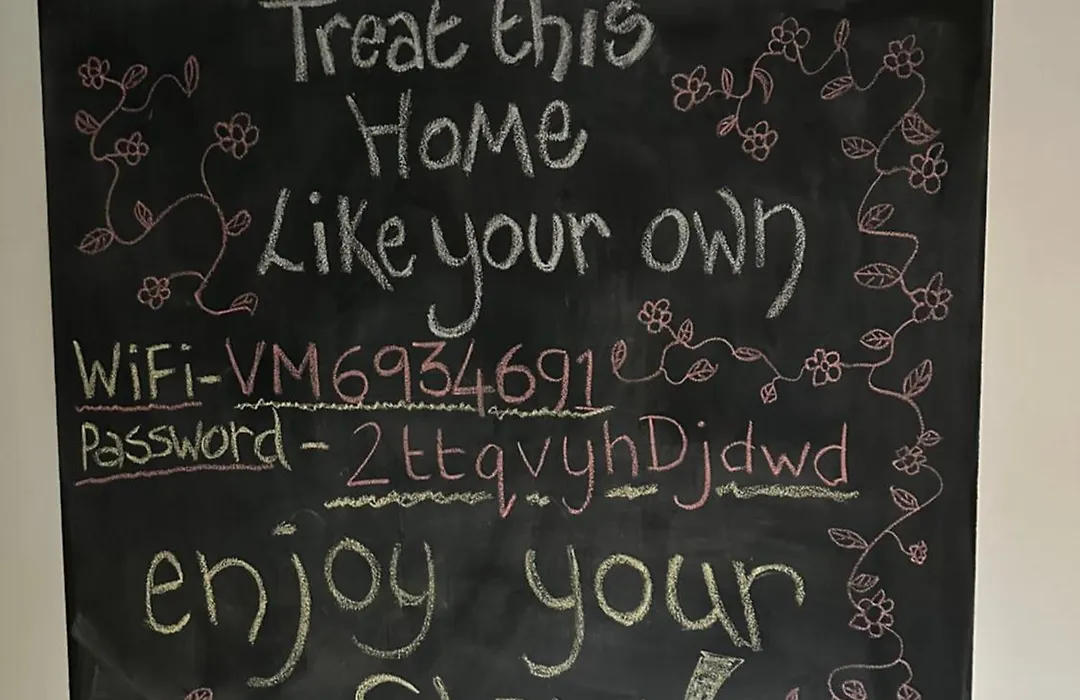 Treat this
Home
Like your own
WiFi-VM6934691
Password - 2ttqvyhDjdwd
enjoy your